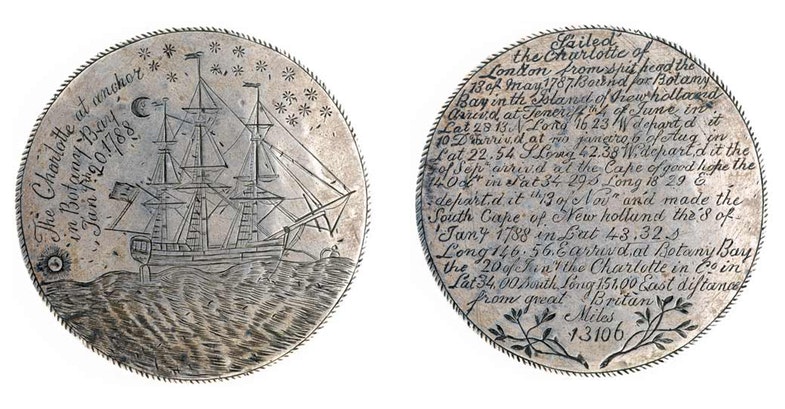 The Charlotte at anchor
in Botany Bay
Jan ry 20. 1788
Sailed
the Charlotte of
London from spit head the
13 of May 1787. Bound for Botany
Bay in th Island of New holland
Arriv,d at Teneriff th 4 of June in
Lat 28 13. N Long 16 23 W depart,d it
10 D arrived at rio janaro 6 of Aug in
Lat 22. 54 S Long 42. 38 W. depart,d it the
of Sepr arriv,d at the Cape of good hope the
14 Oct in Lat 34 29 S Long 18 29 E
depart.d it th 13 of Novm and made the
South Cape of New holland the 8 of
Jany 1788 in Lat 43. 32 s
Long 146. 56. E arriv,d. at Botany Bay
the 20 of Jany the Charlotte in Co in
Lat 34. 00 South Long 151. 00 East distance
from great Britan
Miles
13106